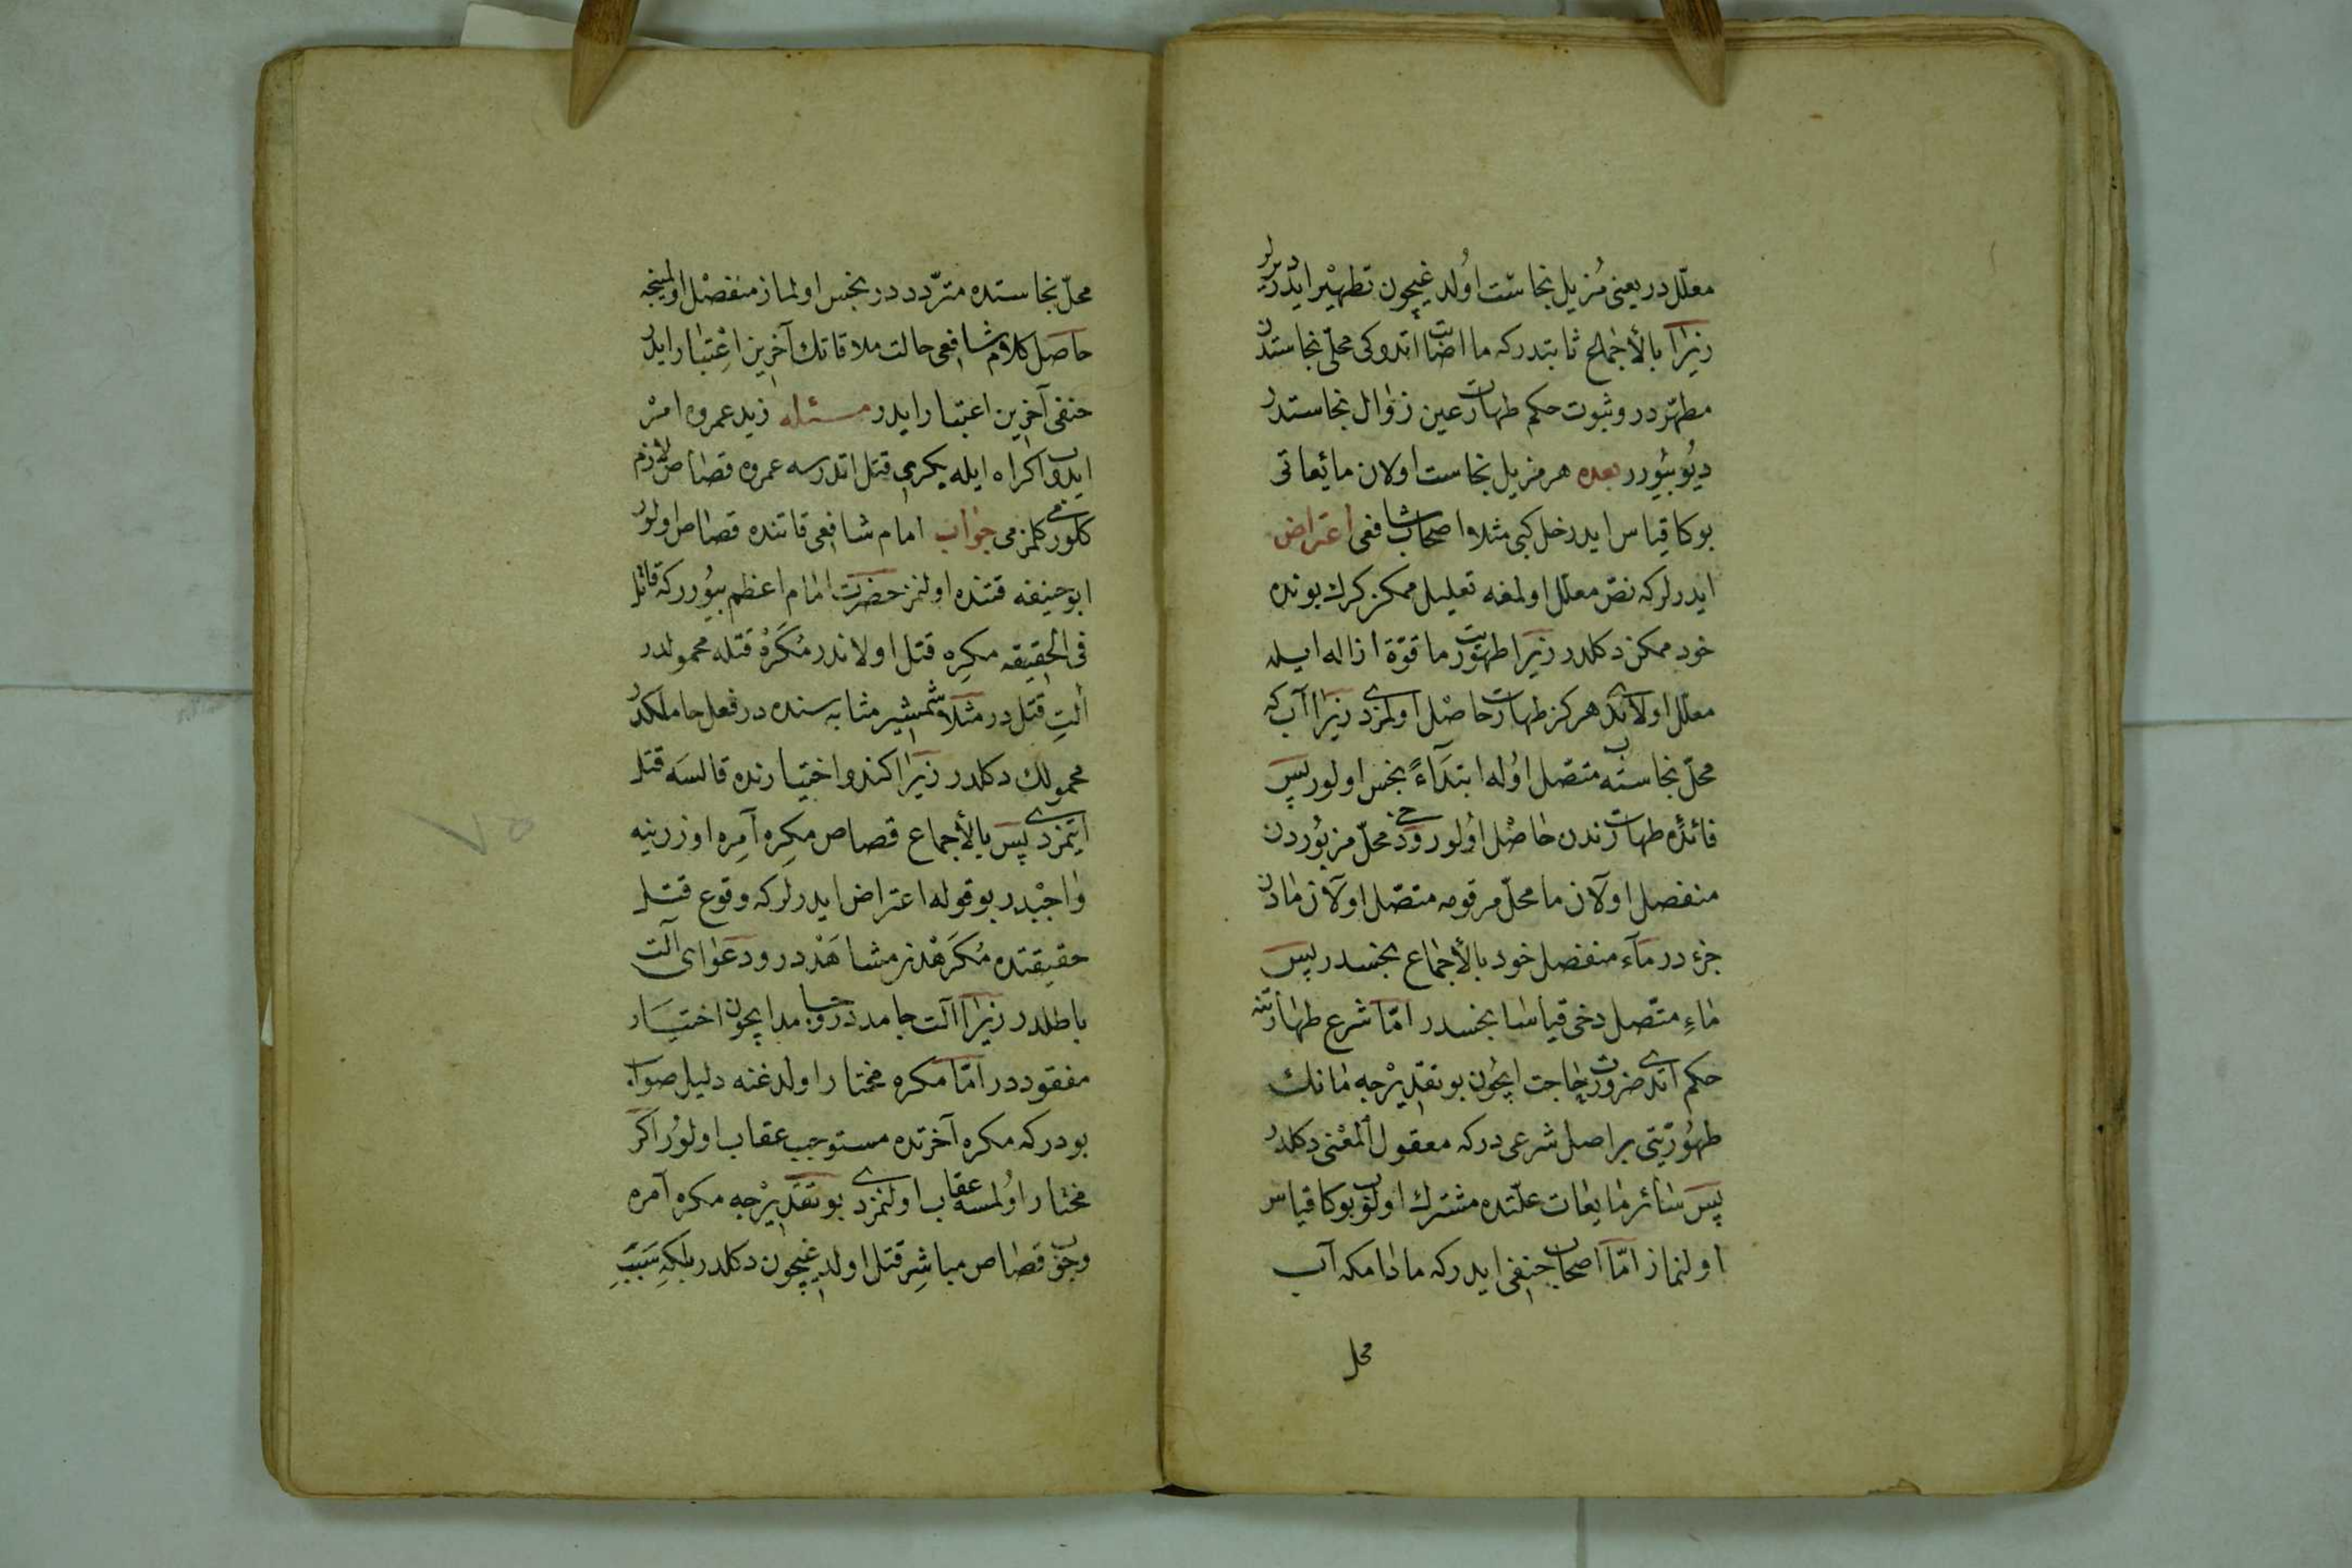 معلّل در یعنی مُزیل نجاست اولدیغیچون تطهیر ایدر دیرلر
زیرا بالأجماع ثابتدر که ما اضافت اتدوکی محلّ نجاستدن
مطهّردر و ثبوت حکم طهارت عین زوال نجاستدر
دیُو بیُورر بعده هر مزیل نجاست اولان مائعاتی
بوکا قیاس ایدر خل کبی مثلا اصحاب شافعی اعتراض
ایدرلر که نصّ معلّل اولمغه تعلیل ممکن کرك بونده
خود ممکن دکلدر زیرا طهوریت ما قوّة ازاله ایله
معلّل اولایدی هرکز طهارت حاصل اولمزدی زیرا آب که
محلّ نجاسته متصل اوله ابتداءً نجس اولور پس
فائدۀ طهارت ندن حاصل اولور ودخی محلّ مزبوردن
منفصل اولان ما محلّ مرقومه متصّل اولان مادن
جزء در ماء منفصل خود بالأجماع نجسدر پس
ماءِ متصّل دخی قیاسا نجسدر امّا شرع طهارتنه
حکم اتدی ضرورت حاجت ایچون بو تقدیرجه مانك
طهوریتی بر اصل شرعی در که معقول المعنی دکلدر
پس سائر مایعات علّتده مشترك اولوب بوکا قیاس
اولنماز امّا اصحاب حنفی ایدر که مادامکه آب
محل
محلّ نجاستده متردّد در نجس اولماز منفصل اولمینجه
حاصل کلام شافعی حالت ملاقاتك آخرین اعتبار ایدر
حنفی آخرین اعتبار ایدر مسئله زید عمروه امر
ایدوب اکراه ایله بکری قتل اتدرسه عمروه قصاص لازم
کلورمی کلمزمی جواب امام شافعی قاتنده قصاص اولور
ابو حنیفه قتنده اولنمز حضرت امام اعظم بیُورر که قاتل
فی الحقیقه مکرِه قتل اولاندر مُکرَهْ قتله محمولدر
آلتِ قتل در مثلا شمشیر مثابه سنده در فعل حاملکدر
محمولك دکلدر زیرا کندو اختیارنده قالسه قتل
ایتمزدی پس بالأجماع قصاص مکرِه آمِره اوزرنیه
واجبدر بو قوله اعتراض ایدرلر که وقوع قتل
حقیقتده مُکرَهْدنر مشاهَدْدر و دعوای آلت
باطلدر زیرا آلت جامددر و جامد ایچون اختیار
مفقوددر امّا مکره مختار اولدغنه دلیل صواب
بودر که مکره آخرتده مستوجب عقاب اولور اکر
مختار اولمسه عقاب اولنمزدی بو تقدیرجه مکره آمره
وجوب قصاص مباشِر قتل اولدیغیچون دکلدر بلکه سَبَبِ